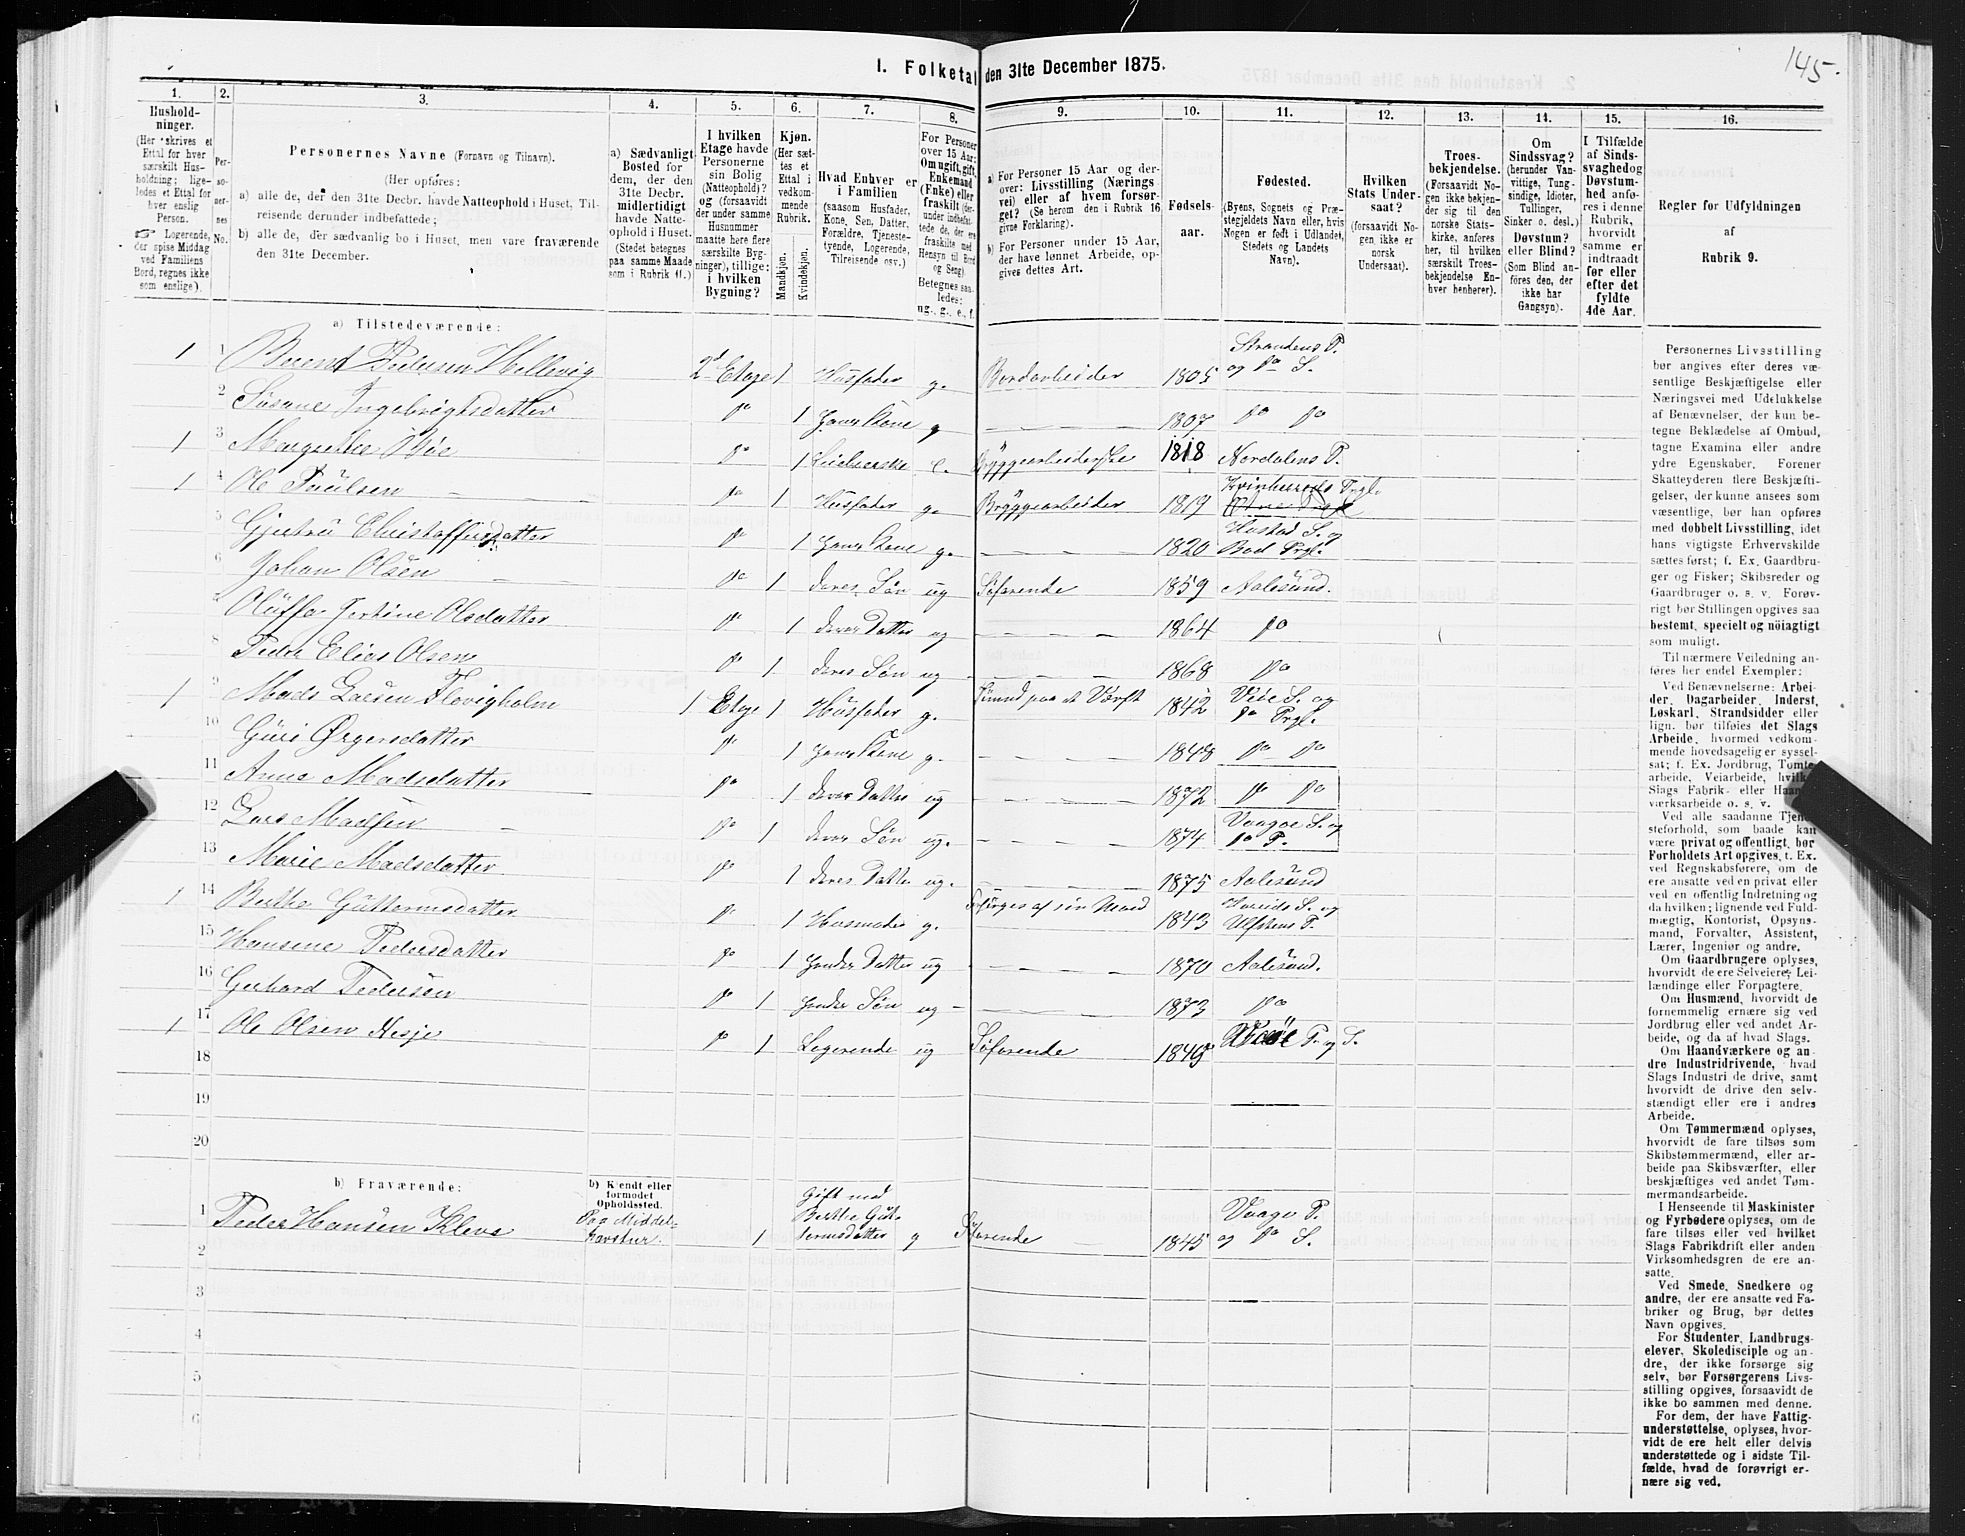 145.
1. Folketal den 31te December 1875.
1. 2. 3. 4. 5. 6. 7. 8. 9. 10. 11. 12. 13. 14. 15. 16.
Hushold-
ninger.
(Her skrives et
Ettal for hver
særskilt Hus-
holdning; lige-
ledes et Ettal for
hver enslig
Person.
☞ Logerende,
der spise Middag
ved Familiens
Bord, regnes ikke
som enslige).
Per-
so-
ner-
nes
No.
Personernes Navne (Fornavn og Tilnavn).
(Her opføres:
a) alle de, der den 31te Decbr. havde Natteophold i Huset, Til-
reisende derunder indbefattede;
b) alle de, der sædvanlig bo i Huset, men vare fraværende
den 31te December.
a) Sædvanligt
Bosted for
dem, der den
31te Decbr.
midlertidigt
havde Natte-
ophold i Huset.
(Stedet betegnes
paa samme Maade
som i Rubrik 11.)
I hvilken
Etage havde
Personerne
sin Bolig
(Natteophold)?
og (forsaavidt
der under samme
Husnummer
maatte høre flere
særskilte Byg-
ninger), tillige:
i hvilken
Bygning?
Kjøn.
(Her sæt-
tes et
Ettal i
vedkom-
mende
Rubrik.
Mandkjøn.
Kvindekjøn.
Hvad Enhver er
i Familien
(saasom Husfader,
Kone, Søn, Datter,
Forældre, Tjeneste-
tyende, Logerende,
Tilreisende osv.)
For Personer
over 15 Aar:
Om ugift, gift,
Enkemand
(Enke) eller
fraskilt (der-
under indbefat-
tede de, der ere
fraskilte med
Hensyn til Bord
og Seng)
Betegnes saa-
ledes:
ug., g., e., f.
a) For Personer 15 Aar og der-
over: Livsstilling (Nærings
vei) eller af hvem forsør-
get? (Se herom den i Rubrik 16
givne Forklaring).
b) For Personer under 15 Aar,
der have lønnet Arbeide, op-
gives dettes Art.
Fødsels-
aar.
Fødested.
(Byens, Sognets og Præ-
stegjeldets Navn eller, hvis
Nogen er født i Udlandet,
Stedets og Landets
Navn).
Hvilken
Stats Under-
saat?
(forsaavidt No-
gen ikke er
norsk
Undersaat).
Troes-
bekjendelse.
(Forsaavidt No-
gen ikke bekjen-
der sig til den
norske Stats-
kirke, anføres
her, til hvilken
særskilt Troes-
bekjendelse En-
hver henhører).
Om
Sindssvag?
(herunder Van-
vittige, Tung-
sindige, Idioter,
Tullinger,
Sinker o. desl.)
Døvstum?
eller Blind?
(Som Blind an-
føres den, der
ikke har
Gangsyn).
I Tilfælde
af Sinds-
svaghed og
Døvstum-
hed anfø-
res i denne
Rubrik,
hvorvidt
samme er
indtraadt
før eller
efter det
fyldte
4de Aar.
Regler for Udfyldningen
af
Rubrik 9.
a) Tilstedeværende:
1 1 Berent Pedersen Hellevig 2d Etage 1 Husfader g. Bordarbeider 1805 Strandens P. og Do S.
2 Susane Ingebrigtsdatter Do 1 hans Kone g 1807 Do Do
1 3 Margrethe Bøe Do 1 e. Bryggearbeiderske 1818 Nordalens P.
1 4 Ole Paulsen Do 1 Husfader g. Bryggearbeider 1819 Kvinherreds Prgl.
5 Gjertru Christoffersdatter Do 1 hans Kone g. 1820 Hustad S. og Bod Prgl.
6 Johan Olsen Do 1 deres Søn ug Søfarende 1859 Aalesund.
7 Oluffa Jertine Olsdatter Do 1 deres Datter ug 1864 Do
8 Peder Elias Olsen Do 1 deres Søn ug 1868 Do
1 9 Mads Larsen Flovigholm 1 Etage 1 Husfader g. Sømand paa et Værft 1842 Veøe S. og Do Prgl.
10 Guri Ørgersdatter Do 1 hans Kone g. 1848 Do Do
11 Anne Madsdatter Do 1 deres Datter ug 1872 Do Do
12 Lars Madsen Do 1 deres Søn ug. 1874 Vaagøe S. og Do P.
13 Marie Madsdatter Do 1 deres Datter ug. 1875 Aalesund
1 14 Berthe Guttormsdatter Do 1 Husmoder g. Forsørges af sin Mand 1843 Hareids S. og Ulfstens P.
15 Hansine Pedersdatter Do 1 hendes Datter ug 1870 Aalesund.
16 Gerhard Pedersen Do 1 hendes Søn ug 1873 Do
1 17 Ole Olsen Nesje Do 1 Logerende ug Søfarende 1849 Veøe P. og S.
18
19
20
b) Fraværende:
b) Kjendt eller
formodet
Opholdssted.
1 Peder Hansen Kleve Paa Middel-havstur. 1 Gift med Berthe Gut-tormsdatter g Søfarende 1845 Vaagø P. og Do S.
2
3
4
5
6
Personernes Livsstilling
bør angives efter deres væ-
sentlige Beskjæftigelse eller
Næringsvei med Udelukkelse
af Benævnelser, der kun be-
tegne Beklædelse af Ombud,
tagne Examina eller andre
ydre Egenskaber. Forener
Skatteyderen flere Beskjæfti-
gelser, der kunne ansees som
væsentlige, bør han opføres
med dobbelt Livsstilling, idet
hans vigtigste Erhvervskilde
sættes først; f. Ex. Gaardbru-
ger og Fisker; Skibsreder og
Gaardbruger o. s. v. Forøv-
rigt bør Stillingen opgives saa
bestemt, specielt og nöiagtigt
som muligt.
Til nærmere Veiledning an-
føres her endel Exempler:
Ved Benævnelserne: Arbei-
der, Dagarbeider, Inderst,
Løskarl, Strandsidder eller
lign. bør tilføies det Slags
Arbeide, hvormed vedkom-
mende hovedsagelig er syssel-
sat; f. Ex. Jordbrug, Tomte-
arbeide, Veiarbeide, hvilket
Slags Fabrik- eller Haand-
værksarbeide o. s. v.
Ved alle saadanne Tjene-
steforhold, som baade kan
være privat og offentligt, bør
Forholdets Art opgives, t. Ex.
ved Regnskabsførere, om de
ere ansatte ved en privat eller
ved en offentlig Indretning og
da hvilken; lignende ved Fuld-
mægtig, Kontorist, Opsyns-
mand, Forvalter, Assistent,
Lærer, Ingeniør og andre.
Om Gaardbrugere oplyses,
hvorvidt de ere Selveiere, Lei-
lændinge eller Forpagtere.
Om Husmænd, hvorvidt de
fornemmelig ernære sig ved
Jordbrug eller ved andet Ar-
beide, og da af hvad Slags.
Om Haandværkere og an-
dre Industridrivende, hvad
Slags Industri de drive, samt
hvorvidt de drive den selv-
stændigt eller ere i andres
Arbeide.
Om Tømmermænd oplyses,
hvorvidt de fare tilsøs som
Skibstømmermænd, eller ar-
beide paa Skibsværfter, eller
beskjæftiges ved andet Tøm-
mermandsarbeide.
I Henseende til Maskinister
og Fyrbødere oplyses, om de
fare tilsøs eller ved hvilket
Slags Fabrikdrift eller anden
Virksomhedsgren de ere an-
satte.
Ved Smede, Snedkere og
andre, der ere ansatte ved Fa-
briker og Brug, bør dettes
Navn opgives.
For Studenter, Landbrugs-
elever, Skoledisciple og an-
dre, der ikke forsørge sig
selv, bør Forsørgerens Livs-
stilling opgives, forsaavidt de
ikke bo sammen med denne.
For dem, der have Fattig-
understøttelse, oplyses, hvor-
vidt de ere helt eller delvis
understøttede og i sidste Til-
fælde, hvad de forøvrigt er-
nære sig ved.